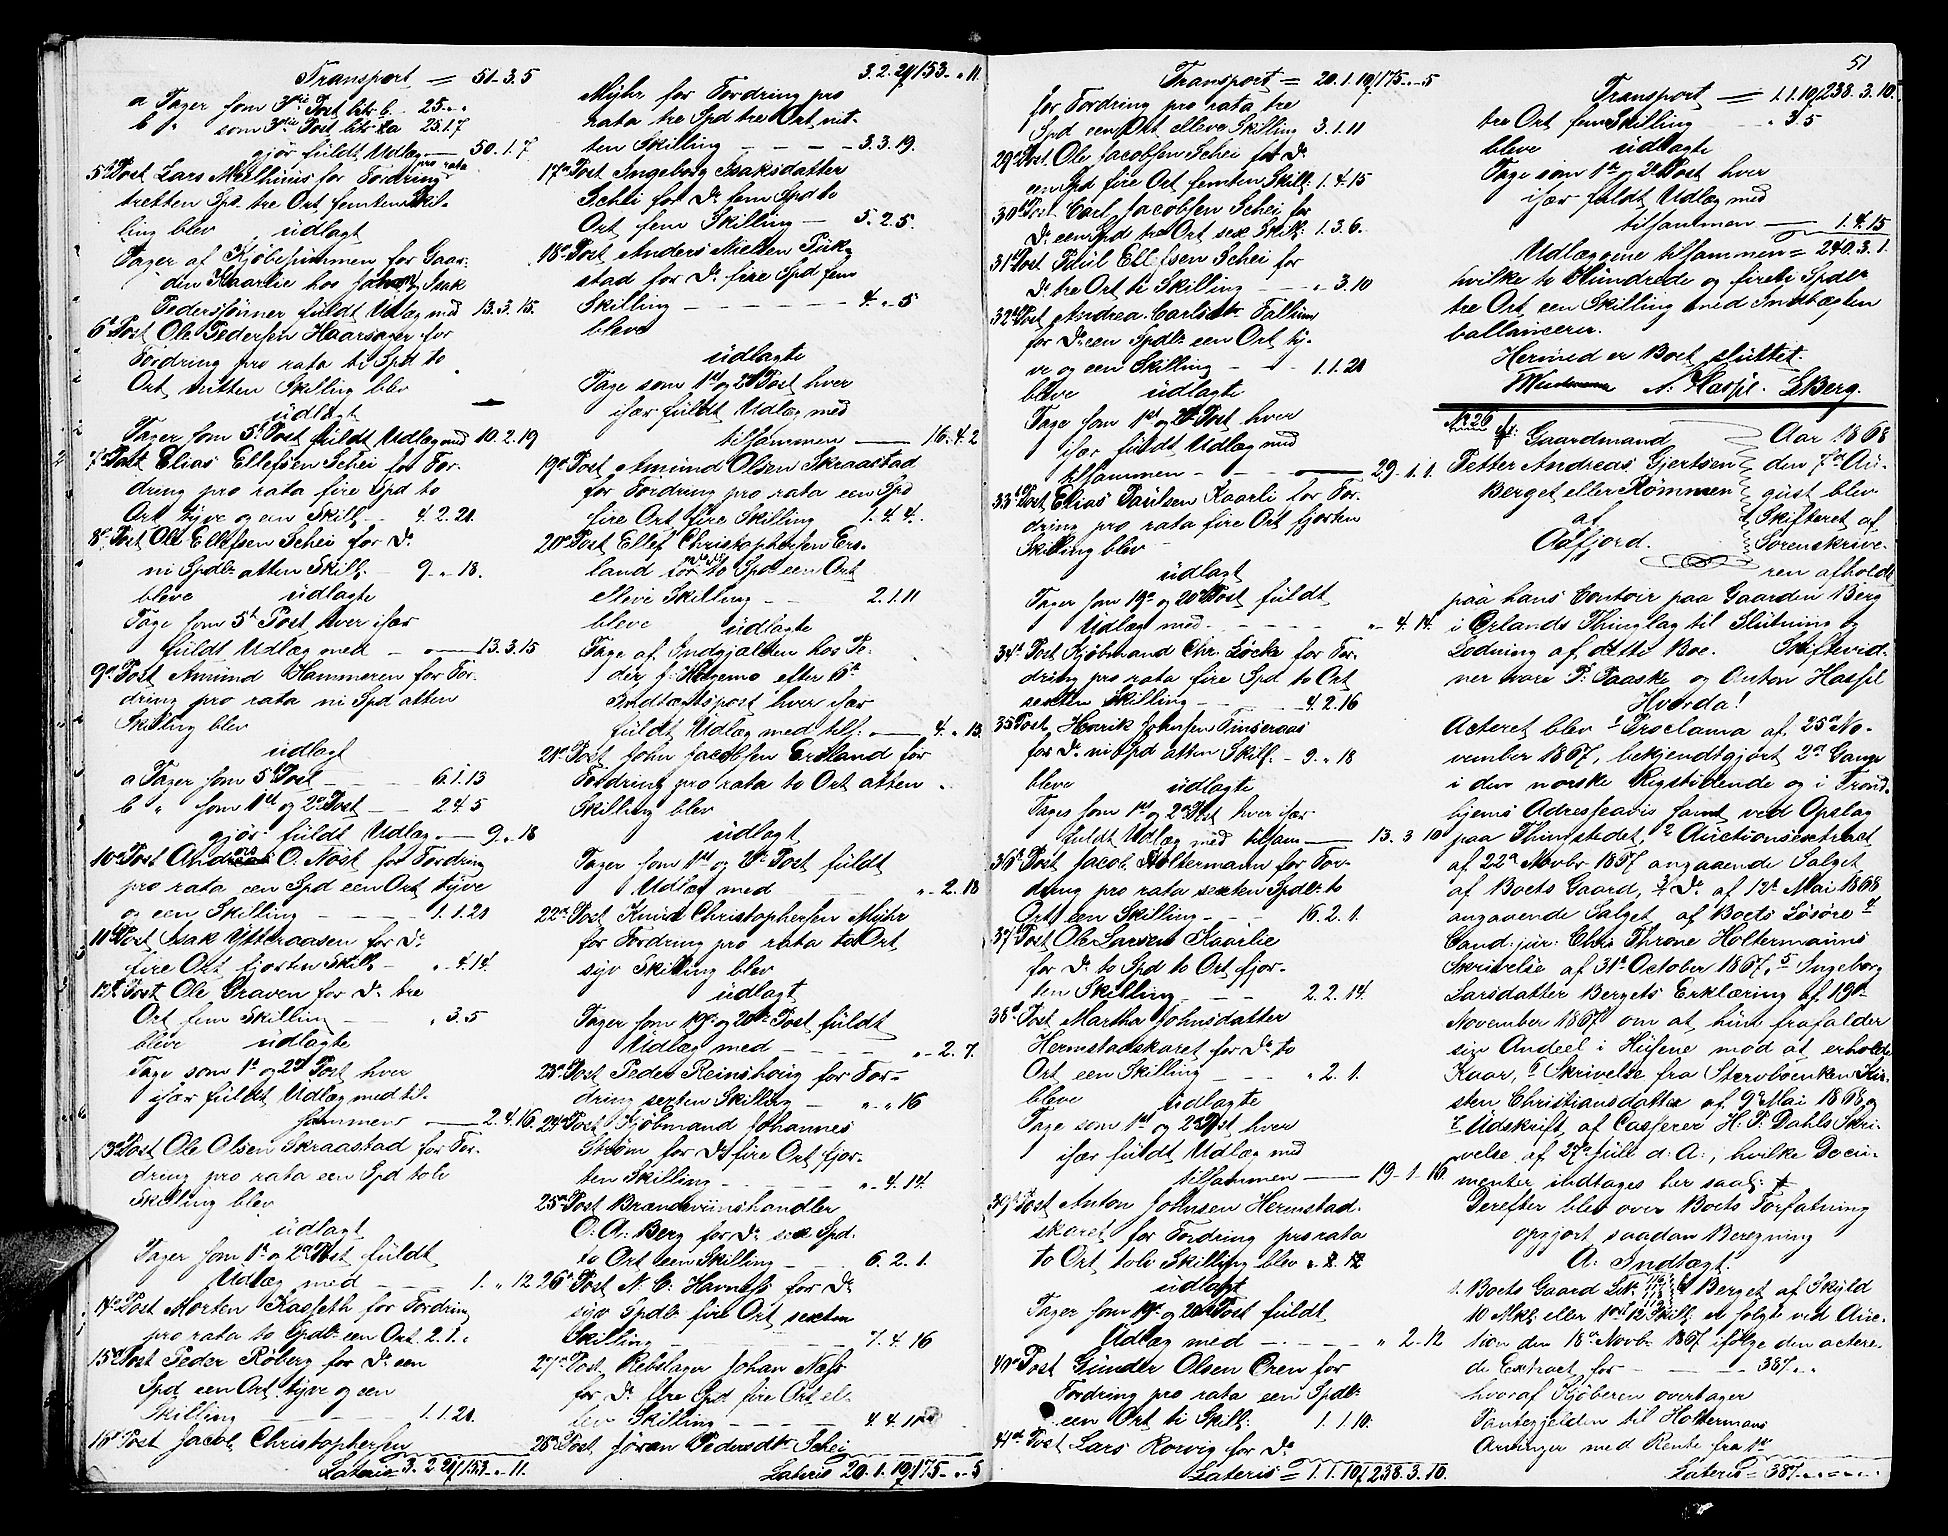 Transport = 51.3.5
a Tager som 3die Post litr b. 25 " "
b " som 3die Post litr a 25.1.7
gjør fuldt Udlæg — 50.1.7
5te Post Lars Melhuus for Fordring pro rata
tretten Spd tre Ort femten Skil-
ling blev udlagt
Tager af Kjøbesummen for Gaar-
den Kaarlie hos Johan og Isak
Pedersønner fuldt Udlæg med 13.3.15.
6te Post Ole Pedersen Haarsager for
Fordring pro rata ti Spd to
Ort nitten Skilling blev
udlagt
Tager som 5te Post fuldt Udlæg med 10.2.19
7de Post Elias Ellefsen Schei for For-
dring pro rata fire Spd to
Ort tyve og een Skill. 4.2.21.
8de Post Ole Ellefsen Schei for Do
ni Spdlr atten Skill. 9 " 18.
bleve udlagte
Tage som 5te Post hver især
fuldt Udlæg med — 13.3.15
9de Post Amund Hammeren for For-
dring pro rata ni Spd atten
Skilling blev
udlagt
a Tager som 5te Post — 6.1.13
b " som 1ste og 2den Post — 2.4.5
gjør fuldt Udlæg — 9 " 18
10de Post Anders O. Nøst for Fordring
pro rata een Spd een Ort tyve
og een Skilling — 1.1.21
11te Post Isak Ytteraasen for Do
fire Ort fjorten Skill. — " 4.14.
12te Post Ole Graven for Do tre
Ort fem Skilling — " 3.5
bleve udlagte
Tage som 1ste og 2den Post hver
især fuldt Udlæg med til-
sammen — 2.4.16.
13de Post Ole Olsen Skraastad for For-
dring pro rata een Spd tolv
Skilling blev
udlagt
Tager som 1ste og 2den Post fuldt
Udlæg med — 1. " 12
14de Post Morten Kasseth for Fordring
pro rata to Spdlr een Ort 2.1. "
15de Post Peder Røberg for Do een
Spd een Ort tyve og een
Skilling — 1.1.21.
16de Post Jacob Christophersen
Lateris 3.2.21/153 " 11.
3.2.21/153 " 11.
Myhr for Fordring pro
rata tre Spd tre Ort nit-
ten Skilling — 3.3.19.
17de Post Ingeborg Isaksdatter
Schei for Do fem Spd to
Ort fem Skilling — 5.2.5.
18de Post Anders Nielsen Puk-
stad for Do fire Spd fem
Skilling — 4 " 5
bleve
udlagte
Tage som 1ste og 2den Post hver
især fuldt Udlæg med
tilsammen — 16.4.2
19de Post Amund Olsen Skraastad
for Fordring pro rata een Spd
fire Ort fire Skilling 1.4.4.
20de Post Ellef Christophersen Ers-
land for Do to Spd een Ort
elleve Skilling — 2.1.11
bleve udlagte
Tage af Indgjælden hos Pe-
der J. Helgemo efter 6te
Indtægtspost hver især
fuldt Udlæg med tils. — 4. " 15
21de Post John Jacobsen Ersland for
Fordring pro rata to Ort atten
Skilling blev
udlagt
Tager som 1ste og 2den Post fuldt
Udlæg med " 2.18
22de Post Knud Christophersen Myhr
for Fordring pro rata to Ort
syv Skilling blev
udlagt
Tager som 19de og 20de Post fuldt
Udlæg med — " 2.7.
23de Post Peder Reinskoug for For-
dring sexten Skilling — " " 16
24de Post Kjøbmand Johannes
Strøm for Do fire Ort fjor-
ten Skilling — " 4.14.
25de Post Brændeviinshandler
O. A. Berg for Do sex Spd.
to Ort een Skilling — 6.2.1.
26de Post N. C. Havness for Do
syv Spdlr fire Ort sexten
Skilling — 7.4.16
27de Post Rebslager Johan Næss
for Do fire Spd fire Ort el-
leve Skilling — 4.4.11
28de Post Jøran Pedersdtr Schei
Lateris 20.1.19/175 " 5
Transport = 20.1.19/175 " 5
for Fordring pro rata tre
Spd een Ort elleve Skilling 3.1.11
29de Post Ole Jacobsen Schei for Do
een Spd fire Ort femten Skill. 1.4.15
30te Post Carl Jacobsen Schei for
Do een Spd tre Ort sex Skill. 1.3.6.
31te Post Paul Ellefsen Schei for
Do tre Ort ti Skilling — " 3.10
32te Post Andrea Carlsdtr Fallum
for Do een Spdlr een Ort ty-
ve og een Skilling — 1.1.21
bleve udlagte
Tage som 1ste og 2den Post hver
især fuldt Udlæg med
tilsammen — 29.1.1.
33te Post Elias Paulsen Kaarli for For-
dring pro rata fire Ort fjorten
Skilling blev
udlagt
Tager som 19de og 20de Post fuldt
Udlæg med — " 4.14.
34te Post Kjøbmand Chr. Løcke for For-
dring pro rata fire Spd to Ort
sexten Skilling — 4.2.16
35te Post Henrik Johnsen Finseraas
for Do ni Spd atten Skill. — 9. " 18
bleve udlagte
Tages som 1ste og 2den Post hver især
fuldt Udlæg med tilsam — 13.3.10
36te Post Jacob Holtermann for For-
dring pro rata sexten Spdlr to
Ort een Skilling — 16.2.1.
37te Post Ole Larsen Kaarlie
for Do to Spd to Ort fjor-
ten Skilling — 2.2.14.
38te Post Martha Johnsdatter
Hermstadskaret for Do to
Ort een Skilling — " 2.1.
bleve udlagte
Tage som 1ste og 2den Post hver
især fuldt Udlæg med
tilsammen — 19.1.16
39te Post Anton Johnsen Hermstad-
skaret for Fordring pro rata
to Ort tolv Skilling blev " 2.12
udlagt
Tager som 19de og 20de Post fuldt
Udlæg med — " 2.12
40de Post Gunder Olsen Oren for
Fordring pro rata een Spdlr
een Ort ti Skill. 1.1.10.
41de Post Lars Rorvig for Do
Lateris = 1.1.10/238.3.10.
51
Transport = 1.1.10/238.3.10.
tre Ort fem Skilling — " 3.5
bleve udlagte
Tage som 1ste og 2den Post hver
især fuldt Udlæg med
tilsammen — 1.4.15
Udlæggene tilsammen = 240.3.1.
hvilke to Hundrede og firti Spdlr
tre Ort een Skilling med Indtægten
ballancerer.
Hermed er Boet sluttet.
A. Hassel. L Berg.
No 26
Gaardmand
Petter Andreas Gjertsen
Berget eller Rømmen
af
Aafjord.
Aar 1868
den 7de Au-
gust blev
Skifteret af
Sorenskrive-
ren afholdt
paa hans Contoir paa Gaarden Berg
i Ørlands Thinglag til Slutning og
Lodning af dette Boe. Skiftevid-
ner vare P. Paaske og Anton Hassel
Hvorda!
Acteret blev 1 Proclama af 25de No-
vember 1867, bekjendtgjort 2de Gange
i den norske Rigstidende og i Trond-
hjems Adresseavis samt ved Opslag
paa Thingstedet, 2 Auctionsextract
af 22de Novbr 1867 angaaende Salget
af Boets Gaard, 3 Do af 12te Mai 1868
angaaende Salget af Boets Løsøre 4
Cand: jur: Chris Throne Holtermanns
Skrivelse af 31te October 1867, 5 Ingeborg
Larsdatter Bergets Erklæring af 19de
November 1867 om at hun frafalder
sin Andeel i Husene mod at erholde
Kaar, 6 Skrivelse fra Stervboenken Kir-
sten Christiansdatter af 9de Mai 1868 og
7 Udskrift af Casserer H. P. Dahls Skri-
velse af 27de Juli d: A:, hvilke Docu-
menter indtages her saal:
Derefter blev over Boets Forfatning
opgjort saadan Beregning
A: Indtægt.
1. Boets Gaard Berget af Skyld
10 Mkl: eller 1 ort 12 Skill. er solgt ved Auc-
tion den 18de Novbr 1867 ifølge den actere-
de Extract for — 387 " "
hvoraf Kjøberen overtager
Pantegjelden til Holtermans
Arvinger med Rente fra 1ste
Lateris = 387 " "